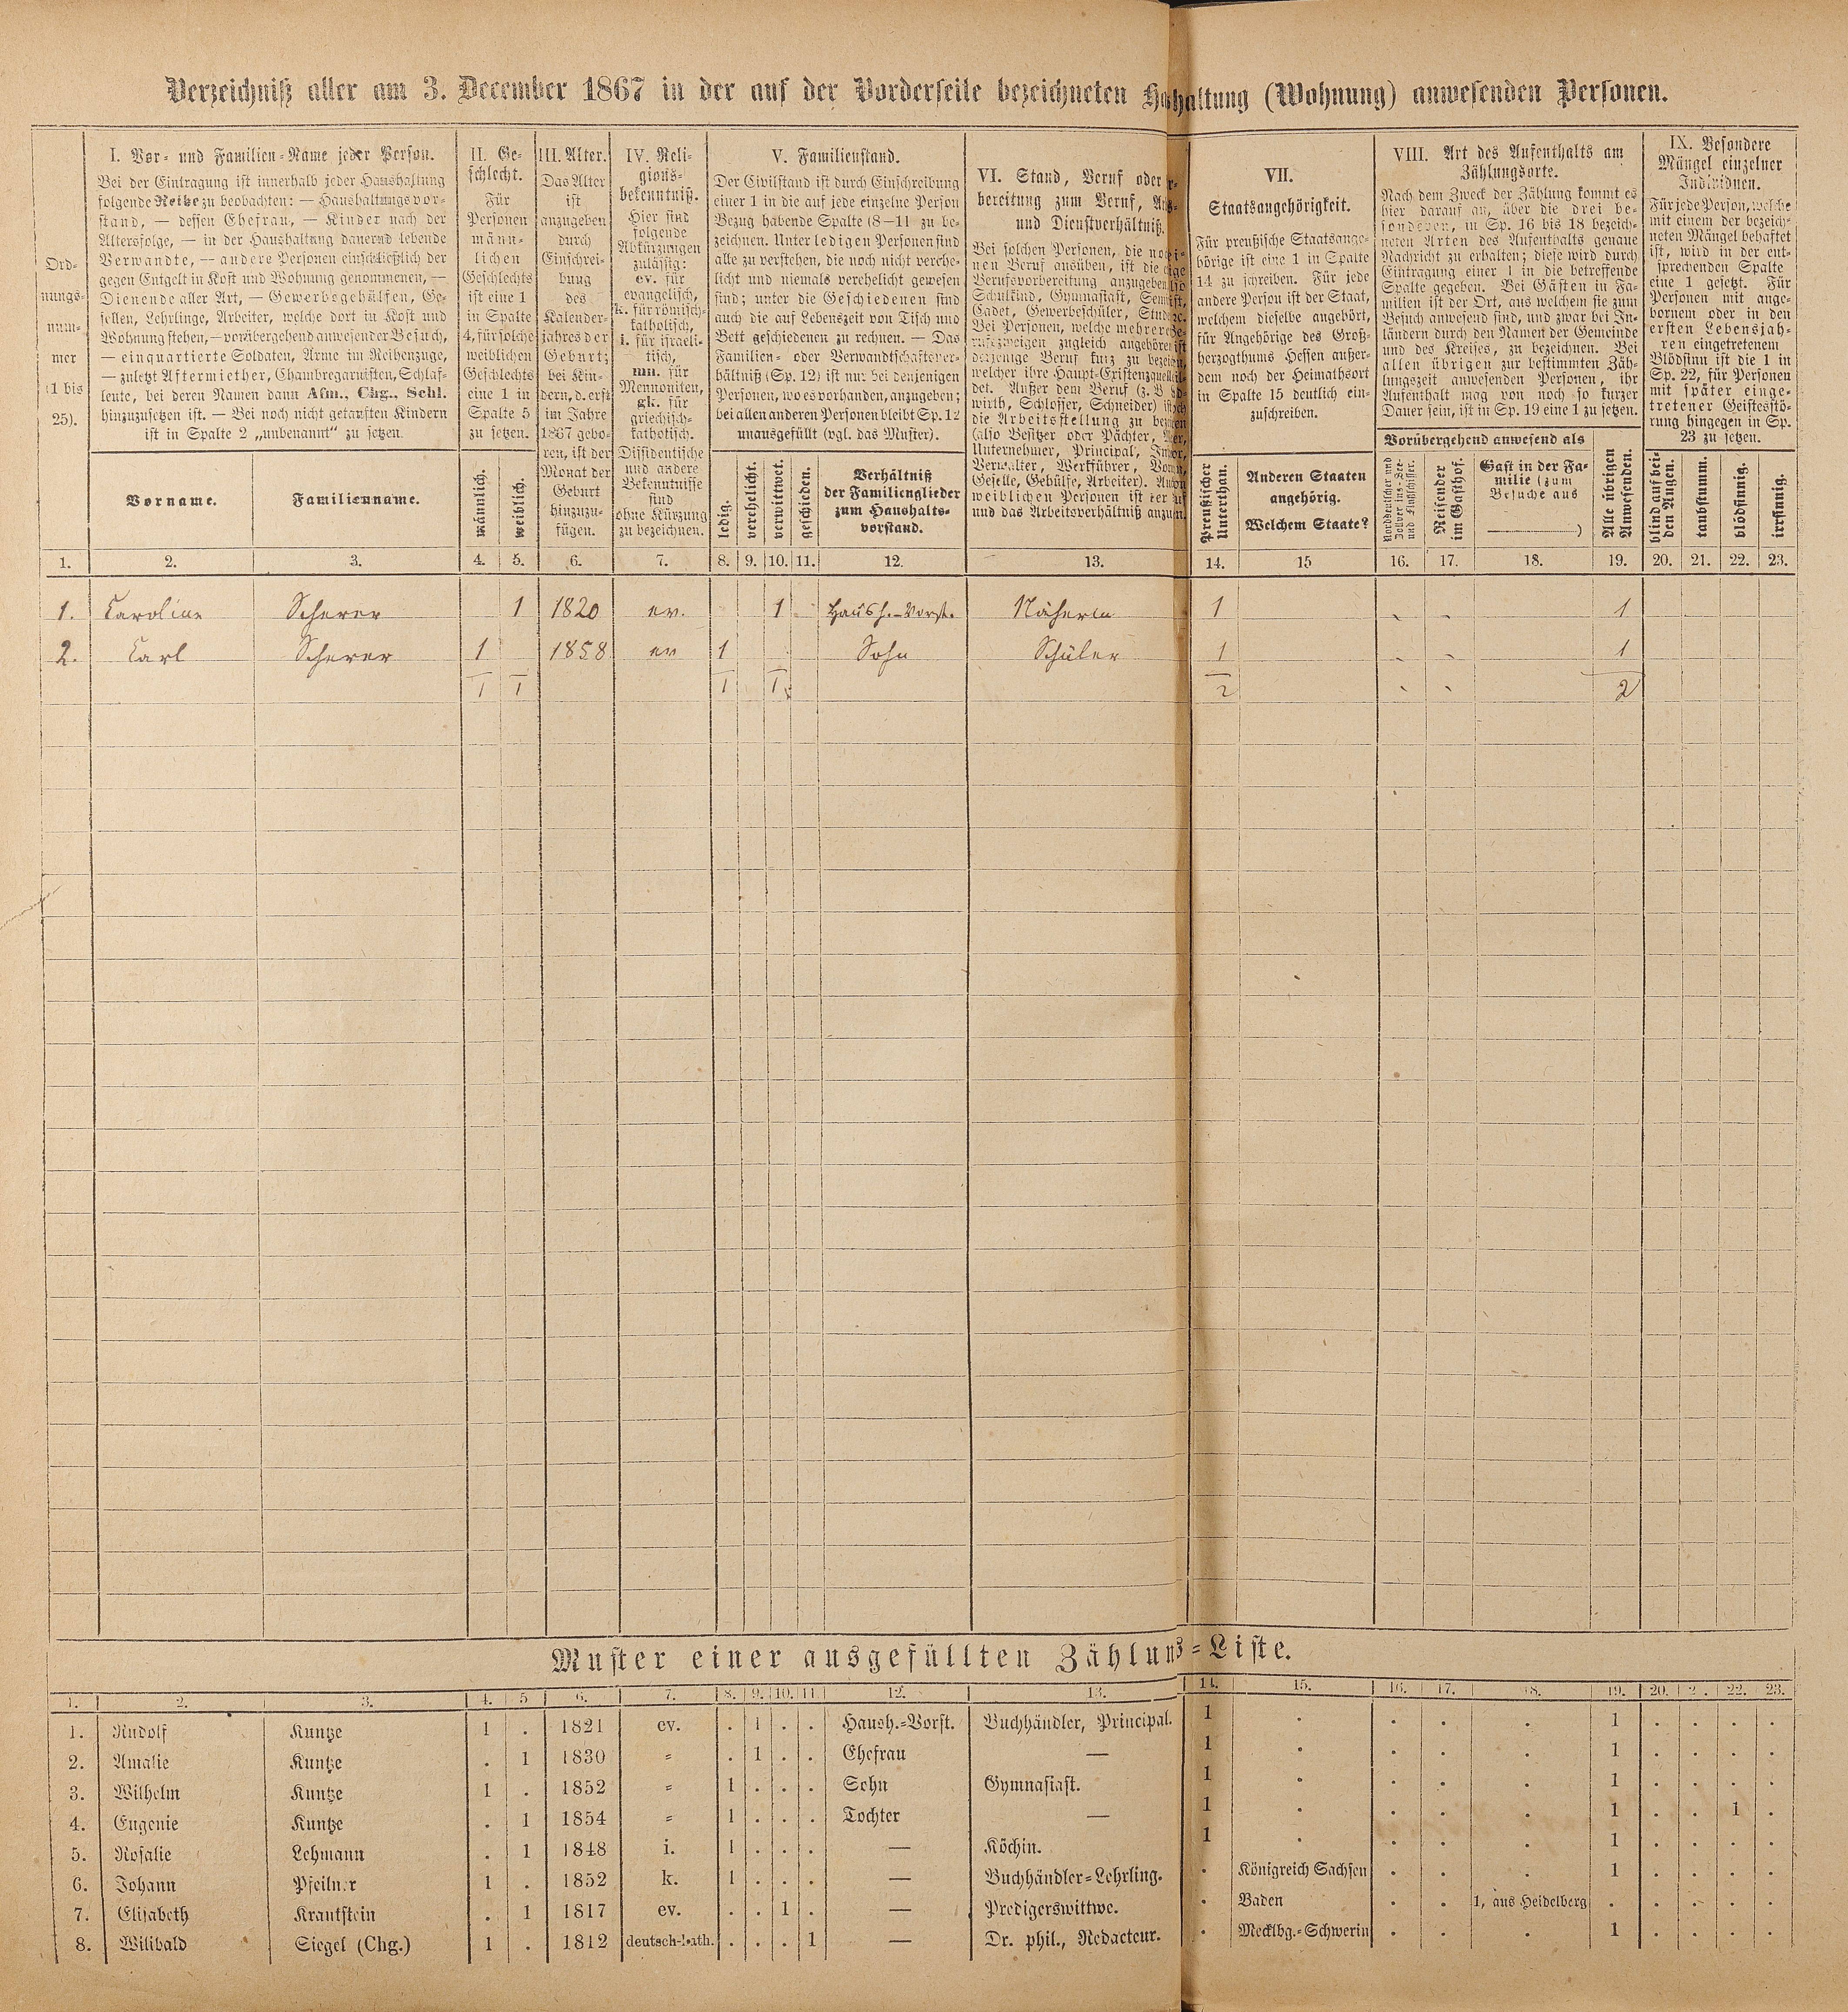 Verzeichniß aller am 3. December 1867 in der auf der Vorderseite bezeichneten Haushaltung (Wohnung) anwesenden Personen.
Ord-
nungs-
num-
mer
(1 bis
25).
I. Vor- und Familien-Name jeder Person.
Bei der Eintragung ist innerhalb jeder Haushaltung
folgende Reihe zu beobachten: — Haushaltungsvor-
stand, — dessen Ehefrau, — Kinder nach der
Altersfolge, — in der Haushaltung dauernd lebende
Verwandte, — andere Personen einschließlich der
gegen Entgelt in Kost und Wohnung genommenen, —
Dienende aller Art, — Gewerbegehülfen, Ge-
sellen, Lehrlinge, Arbeiter, welche dort in Kost und
Wohnung stehen, — vorübergehend anwesender Besuch,
— einquartierte Soldaten, Arme im Reihenzuge,
— zuletzt Aftermiether, Chambregarnisten, Schlaf-
leute, bei deren Namen dann Afm., Chg., Schl.
hinzuzusetzen ist. — Bei noch nicht getauften Kindern
ist in Spalte 2 „unbenannt" zu setzen.
Vorname.
Familienname.
II. Ge-
schlecht.
Für
Personen
männ-
lichen
Geschlechts
ist eine 1
in Spalte
4, für solche
weiblichen
Geschlechts
eine 1 in
Spalte 5
zu setzen.
männlich.
weiblich.
III. Alter.
Das Alter
ist
anzugeben
durch
Einschrei-
bung
des
Kalender-
jahres der
Geburt;
bei Kin-
dern, d. erst
im Jahre
1867 gebo-
ren, ist der
Monat der
Geburt
hinzuzu-
fügen.
IV. Reli-
gions-
bekenntniß.
Hier sind
folgende
Abkürzungen
zulässig:
ev. für
evangelisch,
k. für römisch-
katholisch,
i. für israeli-
tisch,
mn. für
Mennoniten,
gk. für
griechisch-
katholisch.
Dissidentische
und andere
Bekenntnisse
sind
ohne Kürzung
zu bezeichnen.
V. Familienstand.
Der Civilstand ist durch Einschreibung
einer 1 in die auf jede einzelne Person
Bezug habende Spalte (8—11 zu be-
zeichnen. Unter ledigen Personen sind
alle zu verstehen, die noch nicht verehe-
licht und niemals verehelicht gewesen
sind; unter die Geschiedenen sind
auch die auf Lebenszeit von Tisch und
Bett geschiedenen zu rechnen. — Das
Familien- oder Verwandtschaftsver-
hältniß (Sp. 12) ist nur bei denjenigen
Personen, wo es vorhanden, anzugeben;
bei allen anderen Personen bleibt Sp. 12
unausgefüllt (vgl. das Muster).
ledig.
verehelicht.
verwittwet.
geschieden.
Verhältniß
der Familienglieder
zum Haushalts-
vorstand.
VI. Stand, Beruf oder
bereitung zum Beruf,
und Dienstverhältniß.
Bei solchen Personen, die
nen Beruf ausüben, ist die
Berufsvorbereitung anzugeben
Schulkind, Gymnasiast,
Cadet, Gewerbeschüler,
Bei Personen, welche mehrere
rufszweigen zugleich angehören
derjenige Beruf kurz zu
welcher ihre Haupt-Existenzquelle
det. Außer dem Beruf (z. B
wirth, Schlosser, Schneider)
die Arbeitsstellung zu
(also Besitzer oder Pächter,
Unternehmer, Principal,
Verwalter, Werkführer,
Geselle, Gehülfe, Arbeiter).
weiblichen Personen ist der
und das Arbeitsverhältniß
VII.
Staatsangehörigkeit.
Für preußische Staatsange-
hörige ist eine 1 in Spalte
14 zu schreiben. Für jede
andere Person ist der Staat,
welchem dieselbe angehört,
für Angehörige des Groß-
herzogthums Hessen außer-
dem noch der Heimathsort
in Spalte 15 deutlich ein-
zuschreiben.
Preußischer
Unterthan.
Anderen Staaten
angehörig.
Welchem Staate?
VIII. Art des Aufenthalts am
Zählungsorte.
Nach dem Zweck der Zählung kommt es
hier darauf an, über die drei be-
sonderen, in Sp. 16 bis 18 bezeich-
neten Arten des Aufenthalts genaue
Nachricht zu erhalten; diese wird durch
Eintragung einer 1 in die betreffende
Spalte gegeben. Bei Gästen in Fa-
milien ist der Ort, aus welchem sie zum
Besuch anwesend sind, und zwar bei In-
ländern durch den Namen der Gemeinde
und des Kreises, zu bezeichnen. Bei
allen übrigen zur bestimmten Zäh-
lungszeit anwesenden Personen, ihr
Aufenthalt mag von noch so kurzer
Dauer sein, ist in Sp. 19 eine 1 zu setzen.
Vorübergehend anwesend als
Reisender
im Gasthof.
Gast in der Fa-
milie (zum
Besuche aus
)
Alle übrigen
Anwesenden.
IX. Besondere
Mängel einzelner
Individuen.
Für jede Person, welche
mit einem der bezeich-
neten Mängel behaftet
ist, wird in der ent-
sprechenden Spalte
eine 1 gesetzt. Für
Personen mit ange-
bornem oder in den
ersten Lebensjah-
ren eingetretenem
Blödsinn ist die 1 in
Sp. 22, für Personen
mit später einge-
tretener Geistesstö-
rung hingegen in Sp.
23 zu setzen.
blind auf bei-
den Augen.
taubstumm.
blödsinnig.
irrsinnig.
1. 2. 3. 4. 5. 6. 7. 8. 9. 10. 11. 12. 13. 14. 15 16. 17. 18. 19. 20. 21. 22. 23.
1. Caroline Scherer 1 1820 ev. 1 Haush.-Vorst. Näherin 1 1
2. Carl Scherer 1 1858 ev 1 Sohn Schüler 1 1
1 1 1 1 2 2
Muster einer ausgefüllten Zählungs-Liste.
1. 2. 3. 4. 5 6. 7. 8. 9. 10. 11 12. 13. 14. 15. 16. 17. 18. 19. 20. 2 . 22. 23.
1. Rudolf Kuntze 1 . 1821 ev. . 1 . . Haush.-Vorst. Buchhändler, Principal. 1 . . . . 1 . . . .
2. Amalie Kuntze . 1 1830 = . 1 . . Ehefrau — 1 . . . . 1 . . . .
3. Wilhelm Kuntze 1 . 1852 = 1 . . . Sohn Gymnasiast. 1 . . . . 1 . . . .
4. Eugenie Kuntze . 1 1854 = 1 . . . Tochter — 1 . . . . 1 . . 1 .
5. Rosalie Lehmann . 1 1848 i. 1 . . . — Köchin. 1 . . . . 1 . . . .
6. Johann Pfeilner 1 . 1852 k. 1 . . . — Buchhändler-Lehrling. . Königreich Sachsen . . . 1 . . . .
7. Elisabeth Krautstein . 1 1817 ev. . . 1 . — Predigerswittwe. . Baden . . 1, aus Heidelberg . . . . .
8. Wilibald Siegel (Chg.) 1 . 1812 deutsch-kath. . . . 1 — Dr. phil., Redacteur. . Mecklbg.-Schwerin . . . 1 . . . .